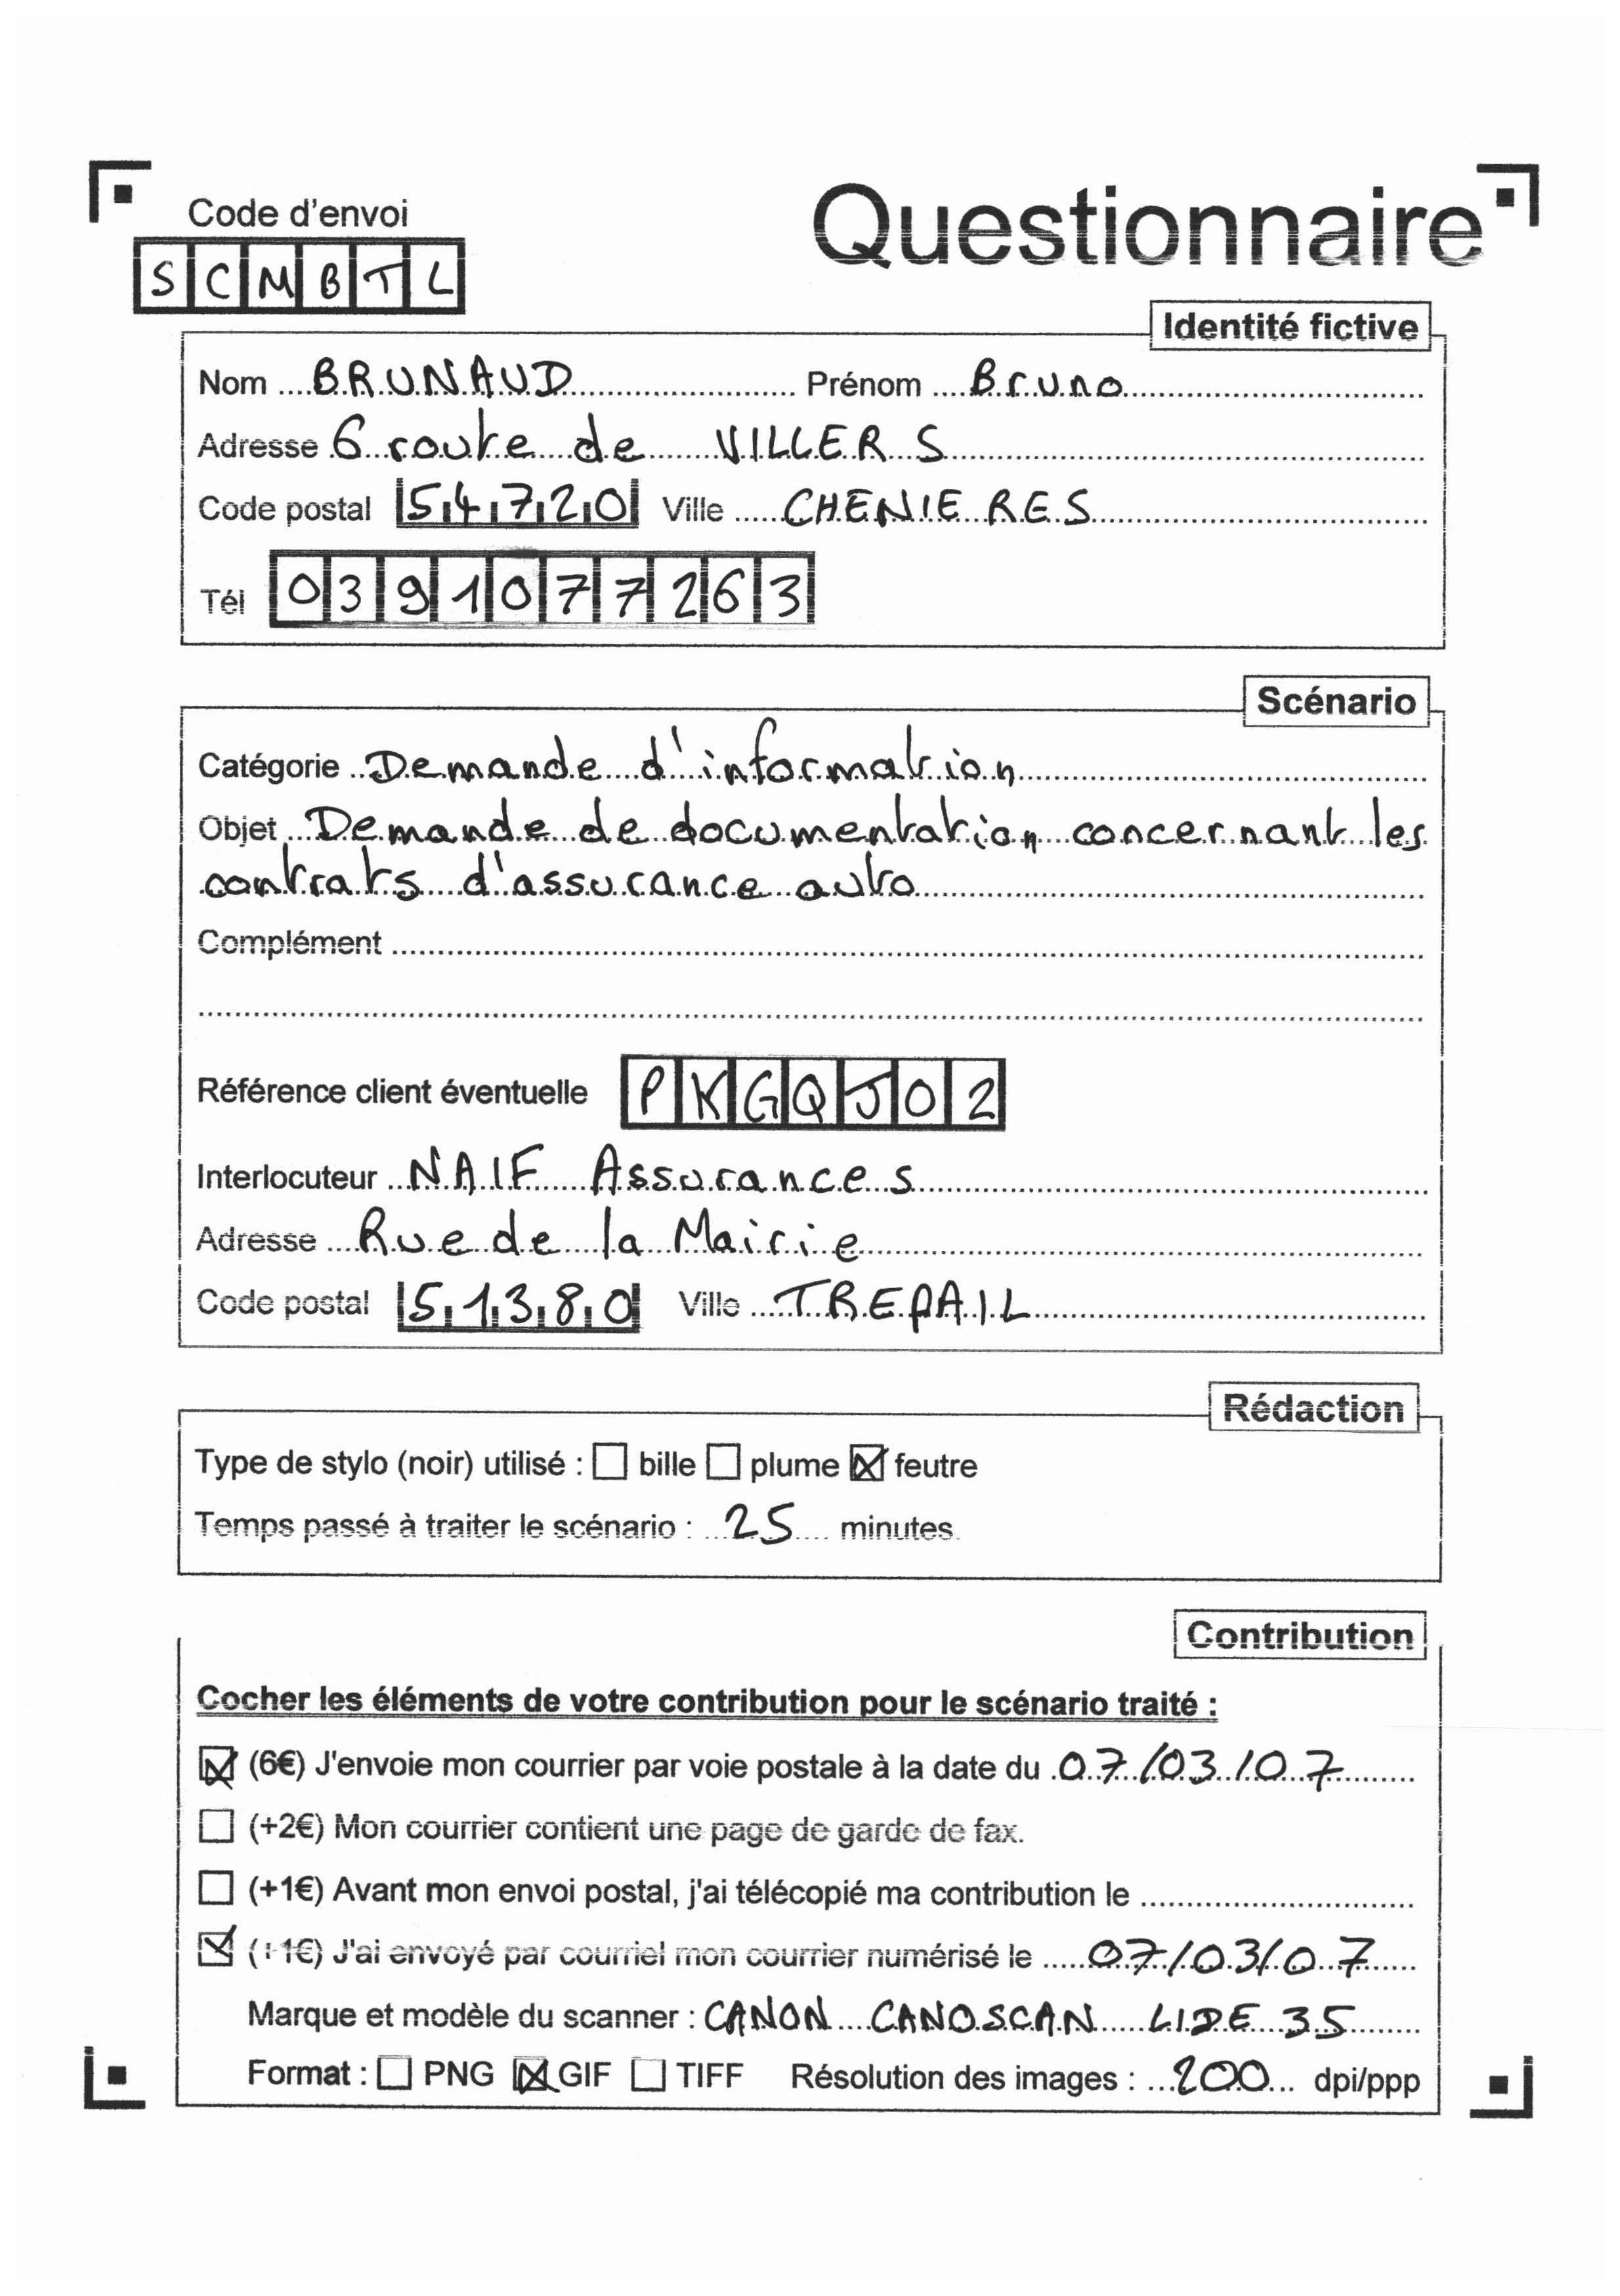 Code d'envoi
Questionnaire
SCMBTL
Identité fictive
Nom BRUNAUD Prénom Bruno
Adresse 6 route de VILLERS
Code postal 54720 Ville CHENIERES
Tél 0391077263
Scénario
Catégorie Demande d'information
Objet Demande de documentation concernant les
contrats d'assurance auto
Complément
Référence client éventuelle PKGQJ02
Interlocuteur NAIF Assurances
Adresse Rue de la Mairie
Code postal 51380 Ville TREPAIL
Rédaction
Type de stylo (noir) utilisé : ☐ bille ☐ plume ☒ feutre
Temps passé à traiter le scénario : 25 minutes
Contribution
Cocher les éléments de votre contribution pour le scénario traité :
☒ (6€) J'envoie mon courrier par voie postale à la date du 07/03/07
☐ (+2€) Mon courrier contient une page de garde de fax.
☐ (+1€) Avant mon envoi postal, j'ai télécopié ma contribution le
☒ (+1€) J'ai envoyé par courriel mon courrier numérisé le 07/03/07
Marque et modèle du scanner : CANON CANOSCAN LIDE 35
Format : ☐ PNG ☒ GIF ☐ TIFF Résolution des images : 200 dpi/ppp